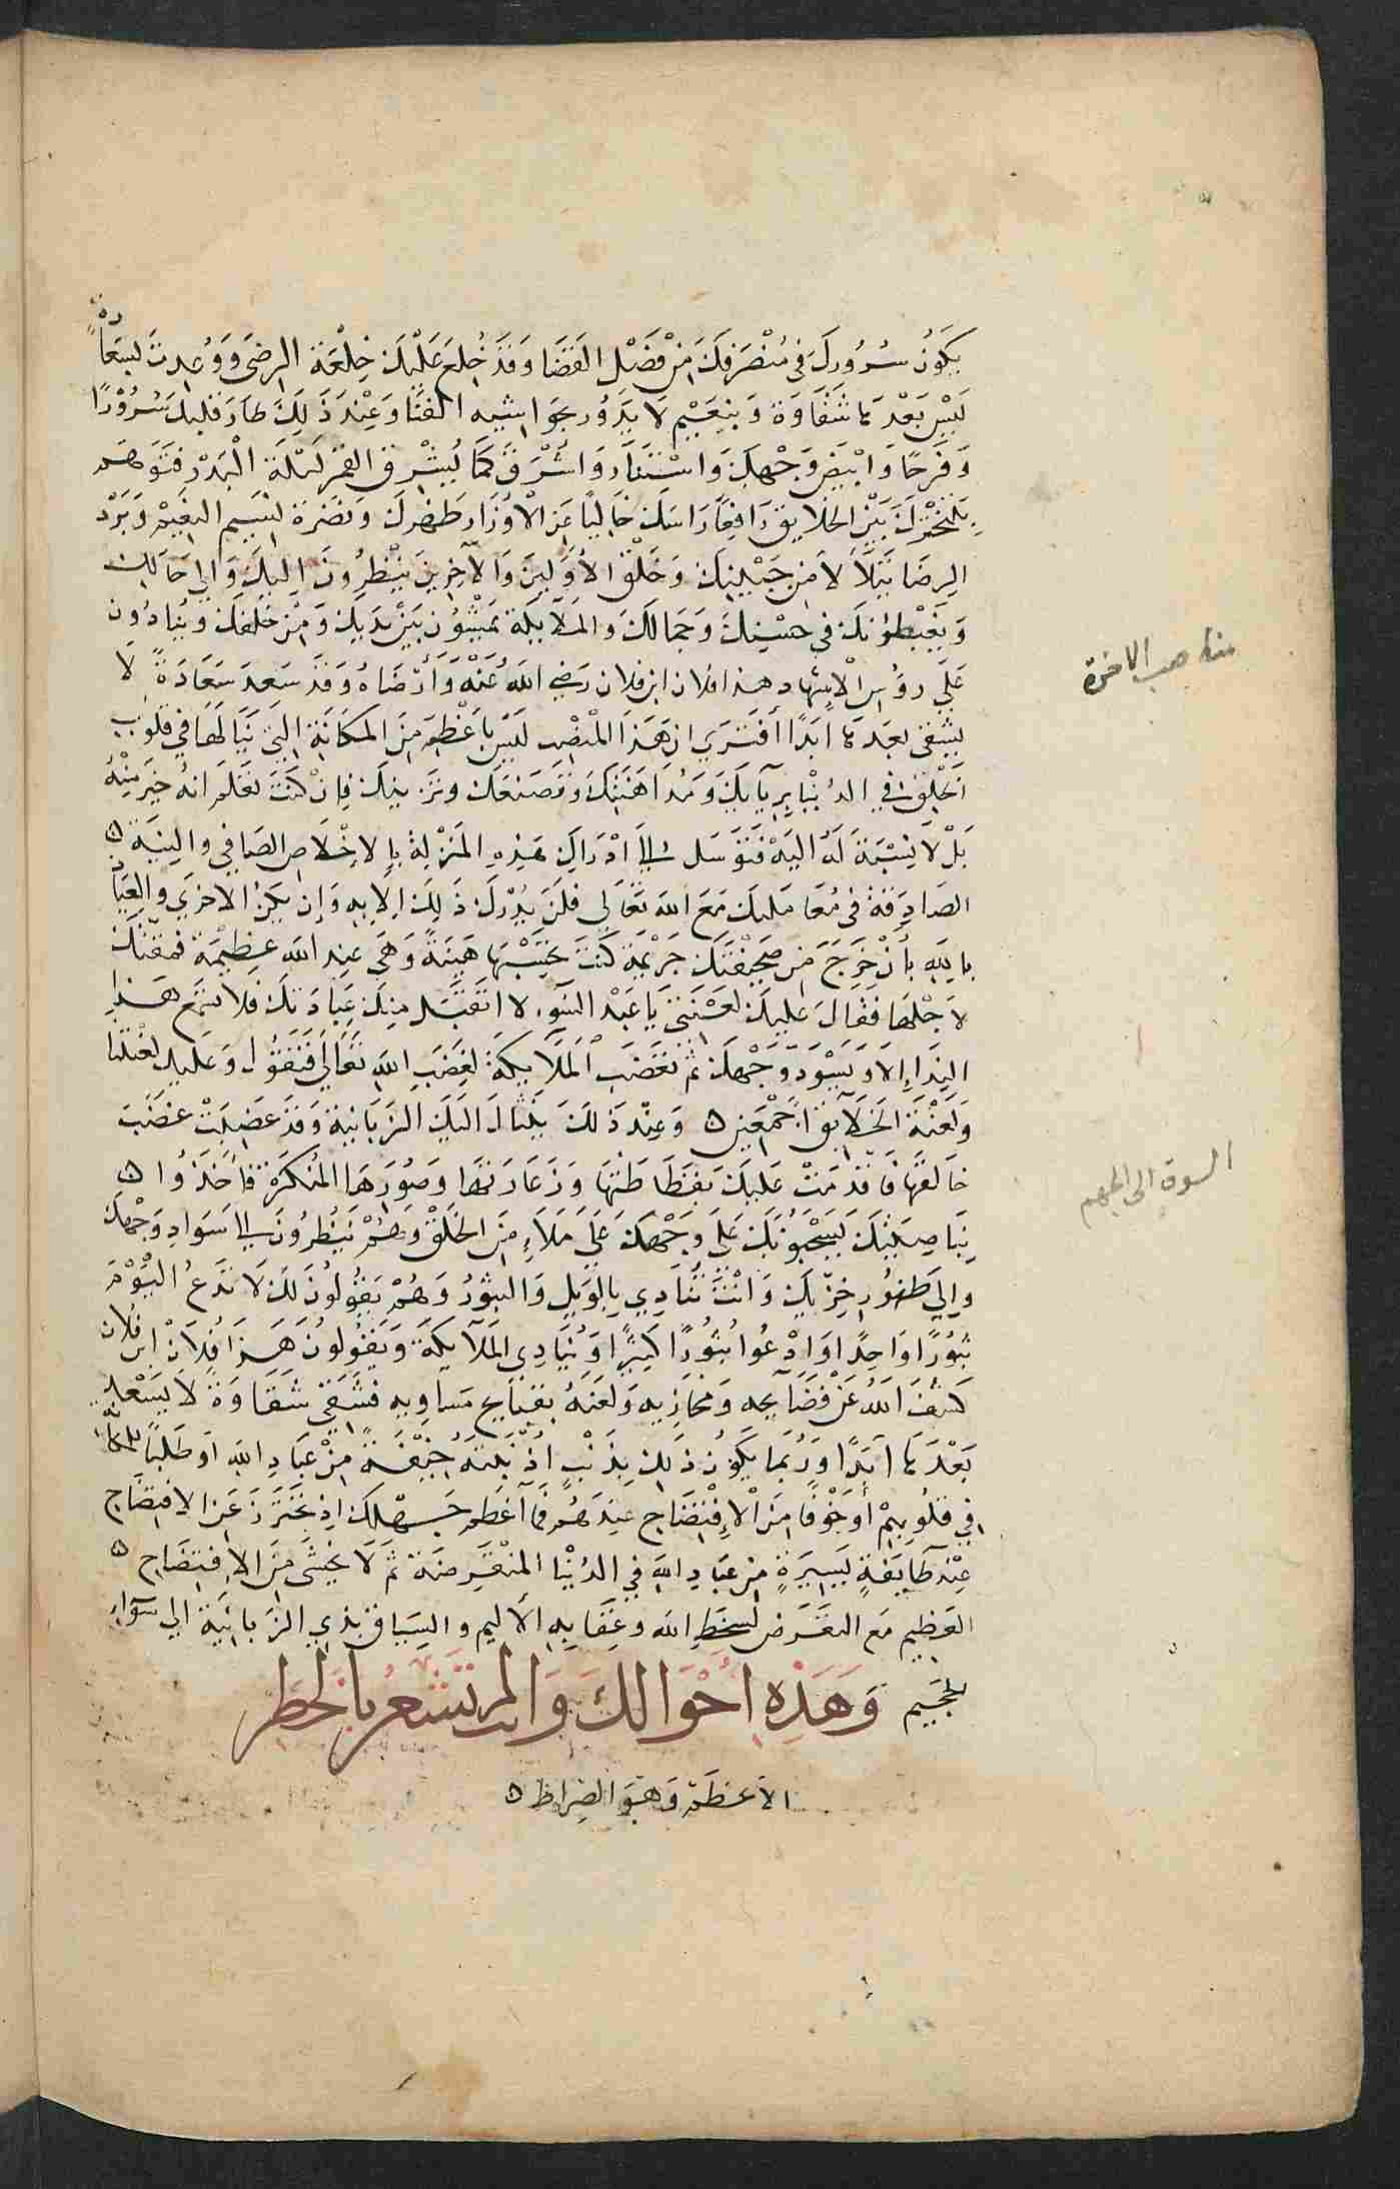 يكون سرورك في منصرفك من فضل القضا وقد خلع عليك خلعة الرضى ووعدت بسعادة
ليس بعدها شقاوة وبنعيم لا يدور بحواشيه الفنا وعند ذلك طار قلبك سرورًا
وفرحًا وابيض وجهك واستنار واشرق كما يشرق القمر ليلة البدر فتوهم
تبخترك بين الخلايق رافعًا راسك خاليًا عن الاوزار ظهرك ونضرة نسيم النعيم وبرد
الرضا يتلألأ من جبينك وخلق الأولين والآخرين ينظرون اليك والي حالك
ويغبطونك في حسنك وجمالك والملايكة يمشون بين يديك ومن خلفك وينادون
علي رؤس الاشهاد هذا فلان ابن فلان رضي الله عنه وأرضاه وقد سعد سعادة لا
يشقى بعدها ابدًا أفتري ان هذا المنصب ليس باعظم من المكانة التي تنالها في قلوب
الخلق في الدنيا بريآيك ومداهنتك وتصنعك وتزينك فان كنت تعلم انه خير منه
بل لا نسبة له اليه فتوسل الي ادراك هذه المنزلة بالاخلاص الصافي والنية
الصادقة في معاملتك مع الله تعالي فلن يدرك ذلك الا به وان يكن الاخري والعياذ
بالله بأن خرج من صحيفتك جريمة كنت تحسبها هينة وهي عند الله عظيمة فمقتك
لاجلها فقال عليك لعنتي يا عبد السوء لا اتقبل منك عبادتك فلا تسمع هذا
الندا إلا ويسود وجهك ثم تغضب الملايكة لغضب الله تعالي فتقول وعليك لعنتنا
ولعنة الخلايق اجمعين ه وعند ذلك ينثال اليك الزبانية وقد غضبت غضب
خالقها فاقدمت عليك بفظاظتها وزعارتها وصورها المنكرة فأخذوا ه
بناصيتك يسحبونك علي وجهك علي ملاء من الخلق وهم ينظرون الي سواد وجهك
والي ظهور خزيك وانت تنادي بالويل والثبور وهم يقولون لك لا تدع اليوم
ثبورًا واحدًا وادعوا ثبورًا كثيرًا وينادي الملآيكة ويقولون هذا فلان ابن فلان
كشف الله عن فضآيحه ومخازيه ولعنه بقبايح مساويه فشقي شقاوة لا يسعد
بعدها ابدًا وربما يكون ذلك بذنب اذنبته خيفة من عباد الله او طلبًا للمكانة
في قلوبهم أو خوفًا من الافتضاح عندهم فما آعظم جهلك اذ تحترز عن الافتضاح
عند طآيفة يسيرة من عباد الله في الدنيا المنقرضة ثم لا تخشى من الافتضاح ه
العظيم مع التعرض لسخط الله وعقابه الأليم والسياق بذي الزبانية الي سوآء
الجحيم وهذه احوالك وانت لم تشعر بالخطر
الاعظم وهو الصراط ه
مناصب الاخرة
السوق الى الجهيم